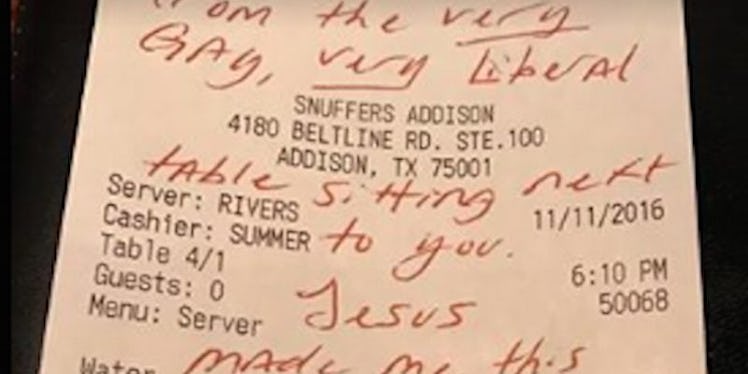 from the very
GAy, very Liberal
SNUFFERS ADDISON
4180 BELTLINE RD. STE.100
ADDISON, TX 75001
tAble sitting next
Server: RIVERS 11/11/2016
Cashier: SUMMER to you.
Table 4/1 6:10 PM
Guests: 0 50068
Menu: Server Jesus
Water made me this